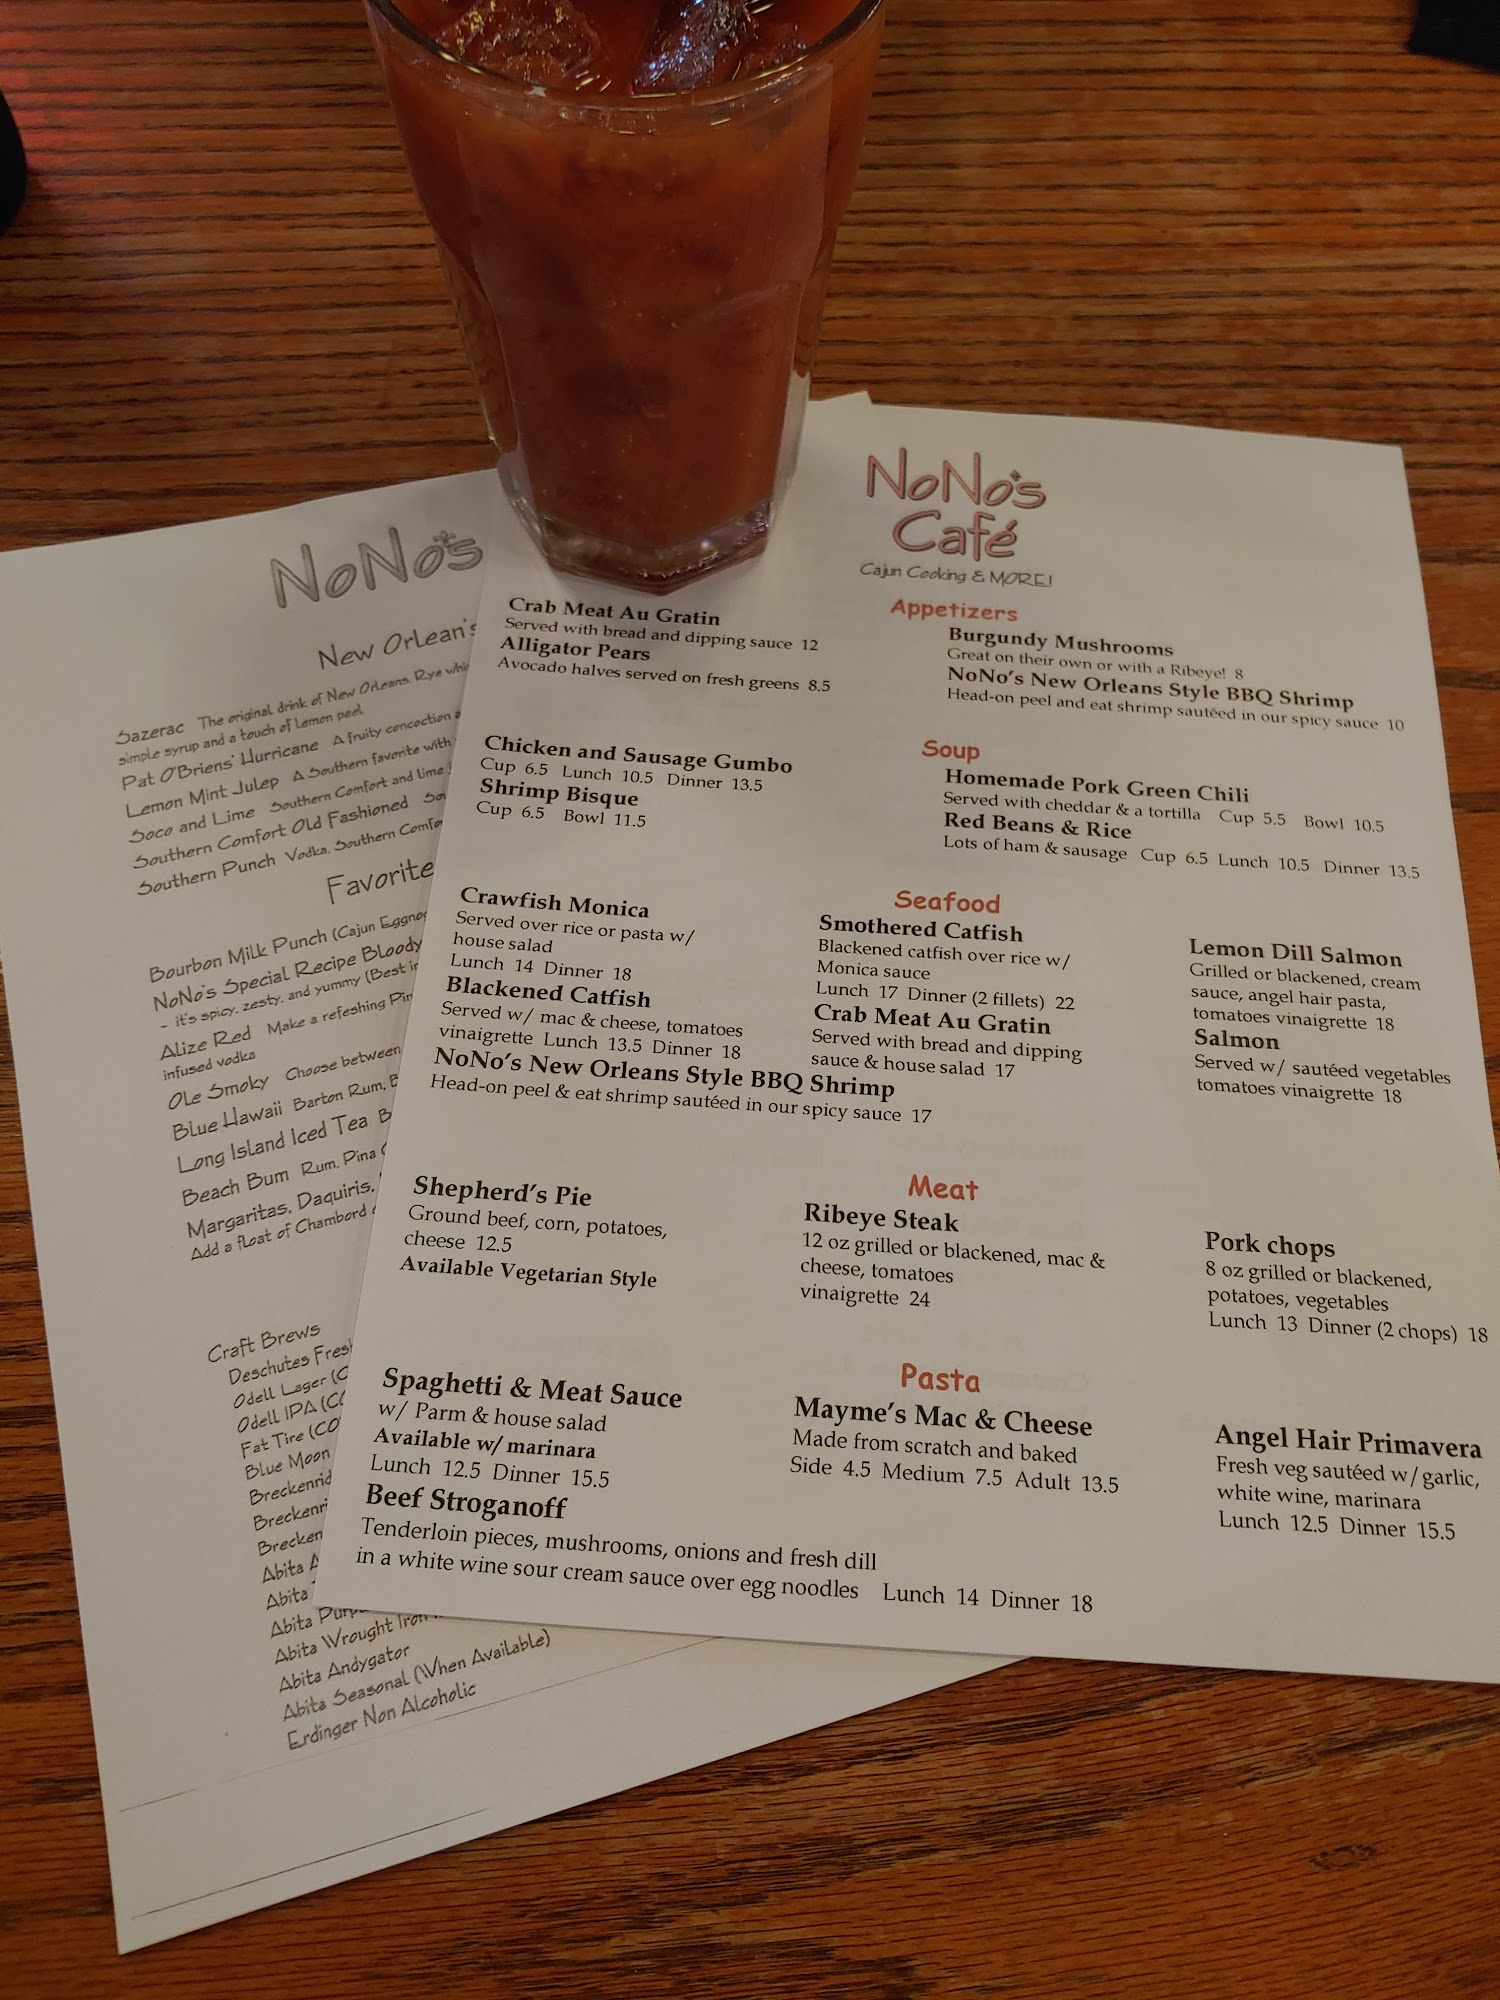 NoNo's
Café
Cajun Cooking & MORE!
Appetizers
Crab Meat Au Gratin
Served with bread and dipping sauce 12
Alligator Pears
Avocado halves served on fresh greens 8.5
Burgundy Mushrooms
Great on their own or with a Ribeye! 8
NoNo's New Orleans Style BBQ Shrimp
Head-on peel and eat shrimp sautéed in our spicy sauce 10
Soup
Chicken and Sausage Gumbo
Cup 6.5 Lunch 10.5 Dinner 13.5
Shrimp Bisque
Cup 6.5 Bowl 11.5
Homemade Pork Green Chili
Served with cheddar & a tortilla Cup 5.5 Bowl 10.5
Red Beans & Rice
Lots of ham & sausage Cup 6.5 Lunch 10.5 Dinner 13.5
Seafood
Crawfish Monica
Served over rice or pasta w/
house salad
Lunch 14 Dinner 18
Blackened Catfish
Served w/ mac & cheese, tomatoes
vinaigrette Lunch 13.5 Dinner 18
NoNo's New Orleans Style BBQ Shrimp
Head-on peel & eat shrimp sautéed in our spicy sauce 17
Smothered Catfish
Blackened catfish over rice w/
Monica sauce
Lunch 17 Dinner (2 fillets) 22
Crab Meat Au Gratin
Served with bread and dipping
sauce & house salad 17
Lemon Dill Salmon
Grilled or blackened, cream
sauce, angel hair pasta,
tomatoes vinaigrette 18
Salmon
Served w/ sautéed vegetables
tomatoes vinaigrette 18
Meat
Shepherd's Pie
Ground beef, corn, potatoes,
cheese 12.5
Available Vegetarian Style
Ribeye Steak
12 oz grilled or blackened, mac &
cheese, tomatoes
vinaigrette 24
Pork chops
8 oz grilled or blackened,
potatoes, vegetables
Lunch 13 Dinner (2 chops) 18
Pasta
Spaghetti & Meat Sauce
w/ Parm & house salad
Available w/ marinara
Lunch 12.5 Dinner 15.5
Beef Stroganoff
Tenderloin pieces, mushrooms, onions and fresh dill
in a white wine sour cream sauce over egg noodles Lunch 14 Dinner 18
Mayme's Mac & Cheese
Made from scratch and baked
Side 4.5 Medium 7.5 Adult 13.5
Angel Hair Primavera
Fresh veg sautéed w/ garlic,
white wine, marinara
Lunch 12.5 Dinner 15.5
NoNo's
New Orlean's
Sazerac The original drink of New Orleans. Rye
simple syrup and a touch of lemon peel
Pat O'Briens' Hurricane A fruity concoction
Lemon Mint Julep A Southern favorite with
Soco and Lime Southern Comfort and lime
Southern Comfort Old Fashioned
Southern Punch Vodka, Southern
Favorite
Bourbon Milk Punch (Cajun
NoNo's Special Recipe Bloody
- it's spicy, zesty, and yummy (Best
Alize Red Make a refeshing
infused vodka
Ole Smoky Choose between
Blue Hawaii Barton Rum,
Long Island Iced Tea
Beach Bum Rum, Pina
Margaritas, Daquiris,
Add a float of Chambord
Craft Brews
Deschutes
Odell Lager
Odell IPA
Fat Tire (CO
Blue Moon
Abita
Abita
Abita
Abita Wrought Iron
Abita Andygator
Abita Seasonal (When Available)
Erdinger Non Alcoholic